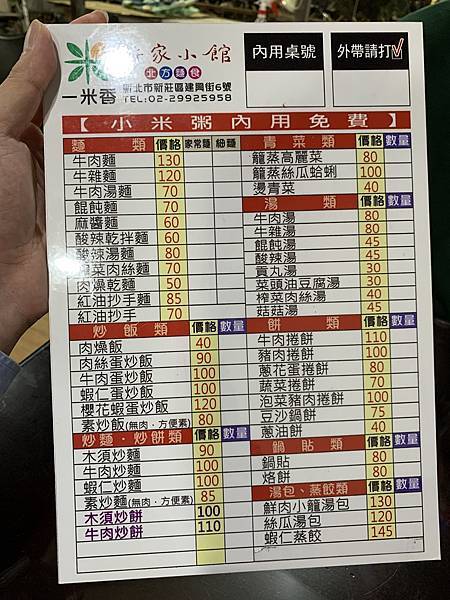 家小館
北方麵食
一米香
新北市新莊區建興街6號
TEL:02-29925958
內用桌號
外帶請打✓
【小米粥內用免費】
麵 類 價格 家常麵 細麵
牛肉麵 130
牛雜麵 120
牛肉湯麵 70
餛飩麵 70
麻醬麵 60
酸辣乾拌麵 60
酸辣湯麵 80
榨菜肉絲麵 70
肉燥乾麵 50
紅油抄手麵 85
紅油抄手 70
炒 飯 類 價格 數量
肉燥飯 40
肉絲蛋炒飯 90
牛肉蛋炒飯 100
蝦仁蛋炒飯 100
櫻花蝦蛋炒飯 120
素炒飯(無肉．方便素) 80
炒麵．炒餅類 價格 數量
木須炒麵 90
牛肉炒麵 100
蝦仁炒麵 100
素炒麵(無肉．方便素) 85
木須炒餅 100
牛肉炒餅 110
青 菜 類 價格 數量
籠蒸高麗菜 80
籠蒸絲瓜蛤蜊 100
燙青菜 40
湯 類 價格 數量
牛肉湯 80
牛雜湯 80
餛飩湯 45
酸辣湯 45
貢丸湯 30
菜頭油豆腐湯 30
榨菜肉絲湯 40
菇菇湯 45
餅 類 價格 數量
牛肉捲餅 110
豬肉捲餅 100
蔥花蛋捲餅 80
蔬菜捲餅 70
泡菜豬肉捲餅 100
豆沙鍋餅 75
蔥油餅 40
鍋 貼 類 價格 數量
鍋貼 80
烙餅 80
湯包、蒸餃類 價格 數量
鮮肉小籠湯包 130
絲瓜湯包 120
蝦仁蒸餃 145